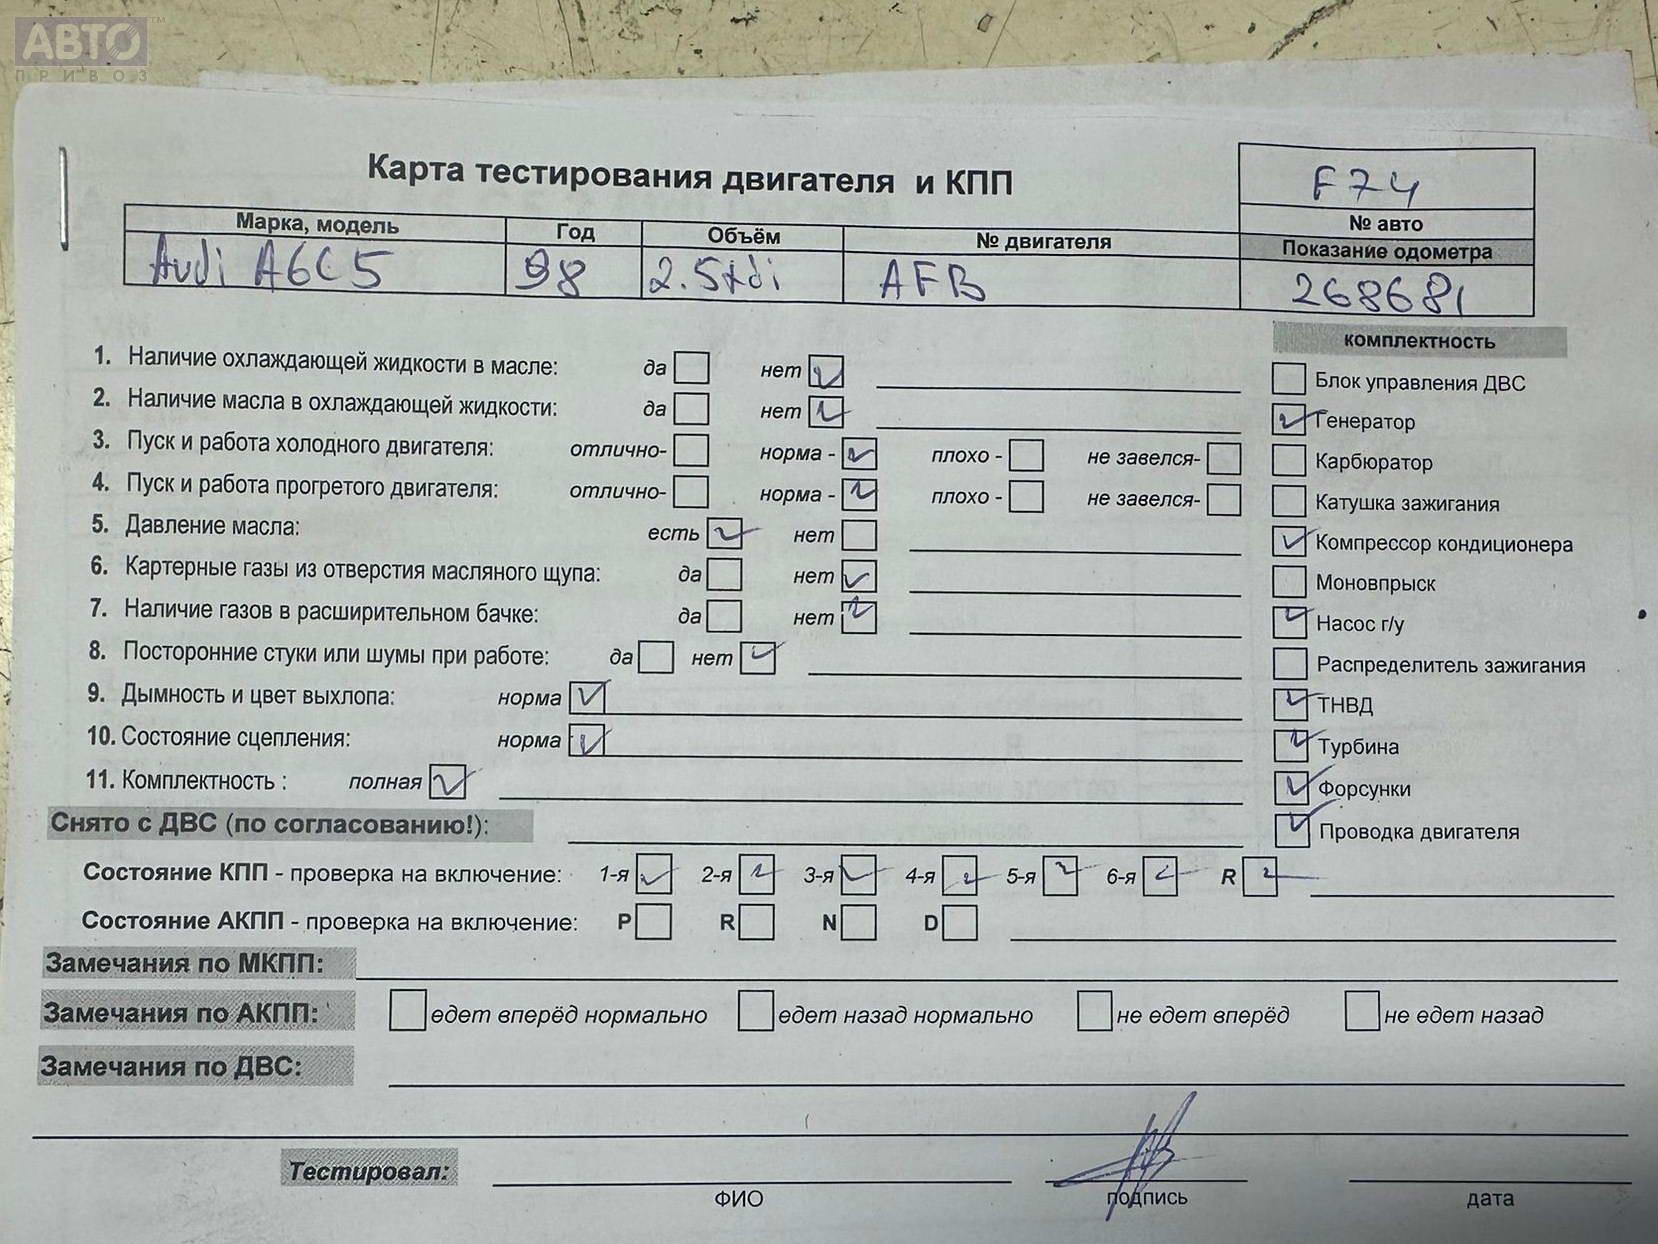 АВТО™
ПРИВОЗ
Карта тестирования двигателя и КПП
F74
№ авто
Марка, модель Год Объём № двигателя Показание одометра
Audi A6C5 98 2.5tdi AFB 268681
комплектность
1. Наличие охлаждающей жидкости в масле: да нет
2. Наличие масла в охлаждающей жидкости: да нет
3. Пуск и работа холодного двигателя: отлично- норма - плохо - не завелся-
4. Пуск и работа прогретого двигателя: отлично- норма - плохо - не завелся-
5. Давление масла: есть нет
6. Картерные газы из отверстия масляного щупа: да нет
7. Наличие газов в расширительном бачке: да нет
8. Посторонние стуки или шумы при работе: да нет
9. Дымность и цвет выхлопа: норма
10. Состояние сцепления: норма
11. Комплектность : полная
Блок управления ДВС
Генератор
Карбюратор
Катушка зажигания
Компрессор кондиционера
Моновпрыск
Насос г/у
Распределитель зажигания
ТНВД
Турбина
Форсунки
Проводка двигателя
Снято с ДВС (по согласованию!):
Состояние КПП - проверка на включение: 1-я 2-я 3-я 4-я 5-я 6-я R
Состояние АКПП - проверка на включение: P R N D
Замечания по МКПП:
Замечания по АКПП: едет вперёд нормально едет назад нормально не едет вперёд не едет назад
Замечания по ДВС:
Тестировал:
ФИО подпись дата